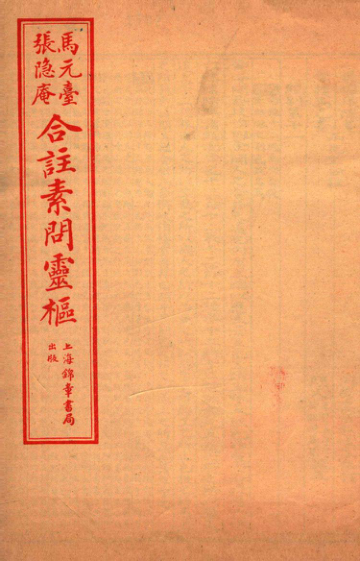 馬元臺
張隐庵
合註素問靈樞
上海錦章書局
出版